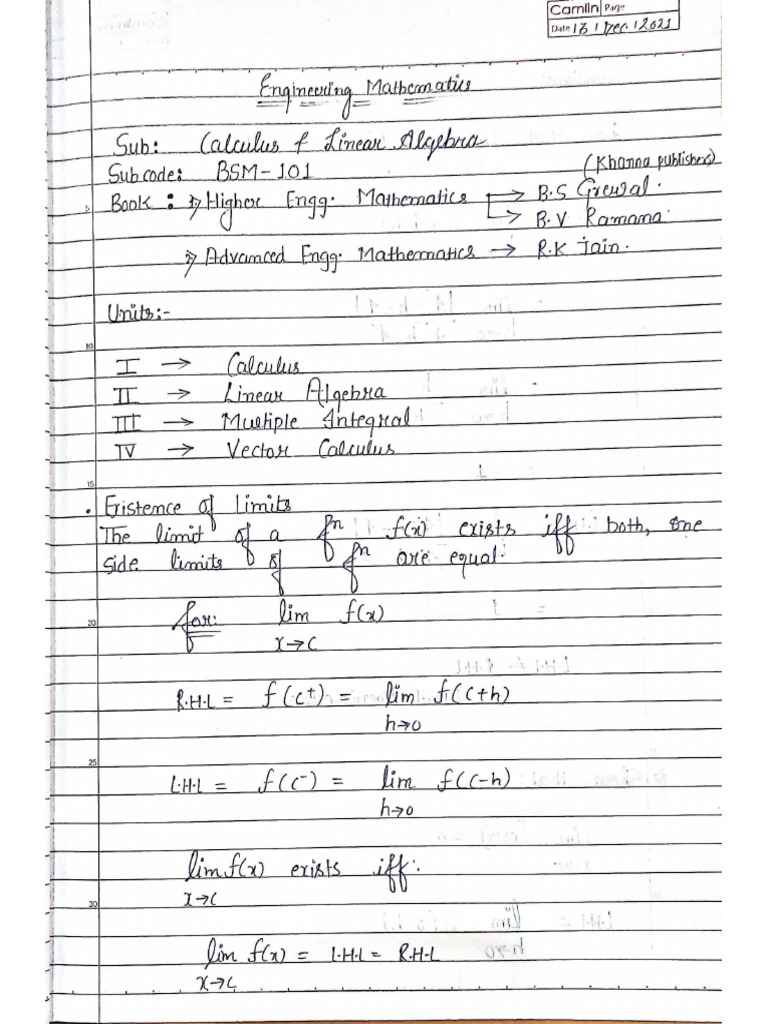 Camlin Page
Date 13 / Dec. / 2021
Engineering Mathematics
Sub: Calculus & Linear Algebra
Sub code: BSM-101
(Khanna publishers)
Book: 1) Higher Engg. Mathematics → B.S Grewal.
→ B.V Ramana.
2) Advanced Engg. Mathematics → R.K Jain.
Units:-
10
I → Calculus
II → Linear Algebra
III → Multiple Integral
IV → Vector Calculus
15
• Existence of limits
The limit of a fⁿ f(x) exists iff both, one
side limits of fⁿ are equal.
20
for: lim f(x)
x→c
R.H.L = f(c⁺) = lim f(c+h)
h→0
25
L.H.L = f(c⁻) = lim f(c-h)
h→0
lim f(x) exists iff:
x→c
30
lim f(x) = L.H.L = R.H.L
x→c